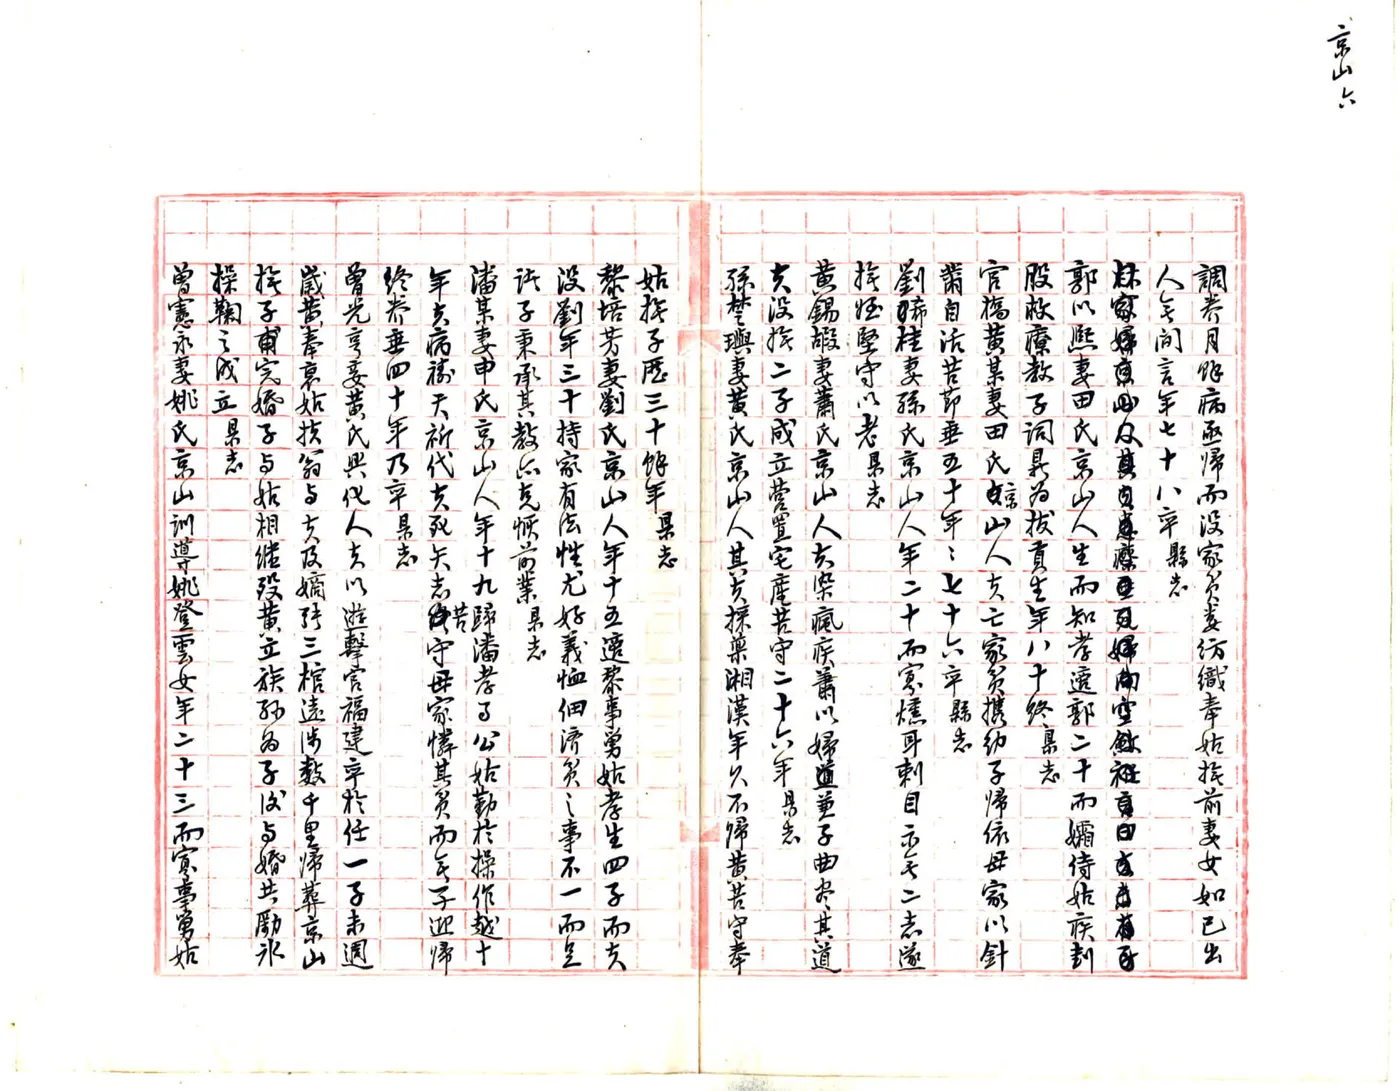 京山 六
調养月餘病亟歸而没家贫娄纺織奉姑撫前妻女如已出
人无间言年七十八卒 縣志
郭以熙妻田氏京山人生而知孝適郭二十而孀侍姑疾刲
股救療教子詞昇为拔貢生年八十终 県志
官橋黄某妻田氏京山人夫亡家贫携幼子帰依母家以針
黹自活苦節垂五十年年七十六卒 縣志
劉稀桂妻孫氏京山人年二十而寡燻耳刺目示无二志遂
撫姪堅守以老 県志
黄錫嘏妻蕭氏京山人夫染瘋疾蕭以婦道兼子曲尽其道
夫没撫二子成立营置宅産苦守二十六年 県志
孫楚璵妻黄氏京山人其夫採藥湘漢年久不帰黄苦守奉
姑撫子歷三十餘年 県志
黎培芳妻劉氏京山人年十五適黎事舅姑孝生四子而夫
没劉年三十持家有法性尤好義恤佃濟贫之事不一而足
訓子秉承其教亦克恢前業 県志
潘某妻申氏京山人年十九歸潘孝于公姑勤於操作越十
年夫病禱天祈代夫死矢志苦守母家憐其贫而无子迎帰
终养垂四十年乃卒 県志
曾光亨妾黄氏興化人夫以遊擊官福建卒於任一子未週
歲黄奉衰姑扶翁与夫及嫡殯三棺遠涉數千里帰葬京山
撫子甫完婚子与姑相继殁黄立族孙为子後与婚共勵冰
操鞠之成立 県志
曾憲永妻姚氏京山訓導姚登雲女年二十三而寡事舅姑